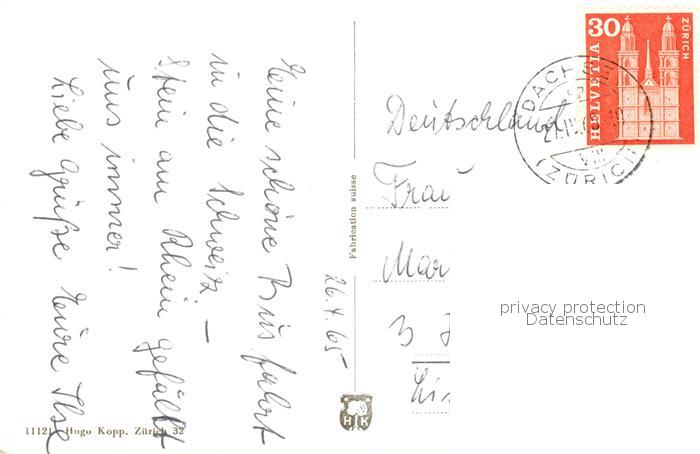 Eine schöne Busfahrt
in die Schweiz. –
Stein am Rhein gefällt
uns immer!
Liebe Grüße Eure Ilse
26.4.65
Fabrication suisse
11121 Hugo Kopp, Zürich 32
HK
30
HELVETIA
ZÜRICH
DACHSEN
(ZÜRICH)
Deutschland
Frau
Mar
3
privacy protection
Datenschutz